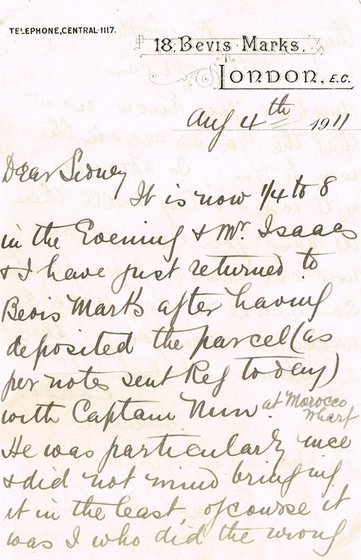 TELEPHONE, CENTRAL 1117.
18, Bevis Marks,
London, E.C.
Aug 4th 1911
Dear Sidney
It is now 1/4 to 8
in the Evening & Mr. Isaacs
& I have just returned to
Bevis Marks after having
deposited the parcel (as
per notes sent Reg today)
with Captain Nunn at Morocco
Wharf
He was particularly nice
& did not mind bringing
it in the least, of course it
was I who did the wrong